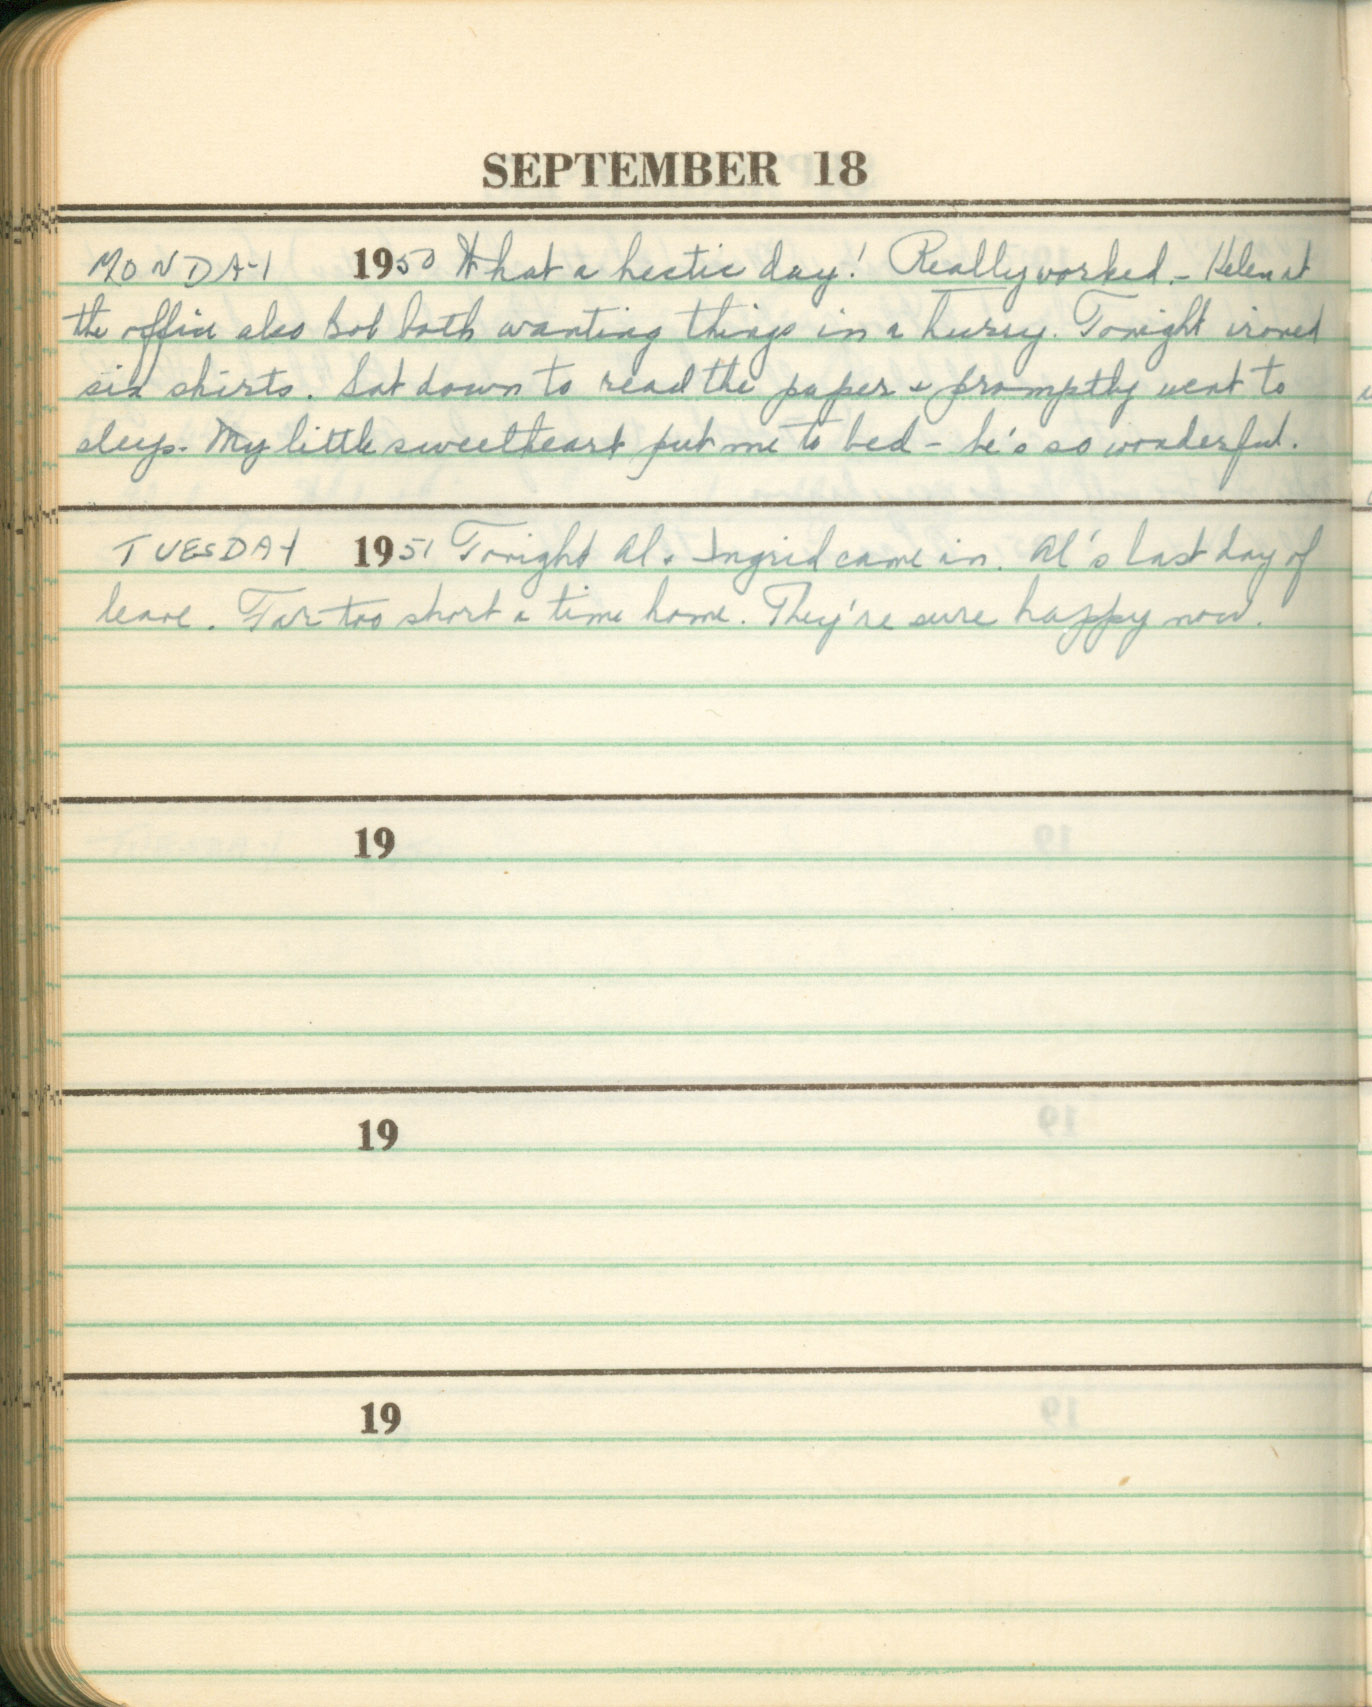 SEPTEMBER 18
MONDAY 1950 What a hectic day! Really worked - Helen at
the office also Bob both wanting things in a hurry. Tonight ironed
six shirts. Sat down to read the paper & promptly went to
sleep. My little sweetheart put me to bed - he's so wonderful.
TUESDAY 1951 Tonight Al & Ingrid came in. Al's last day of
leave. Far too short a time home. They're sure happy now.
19
19
19